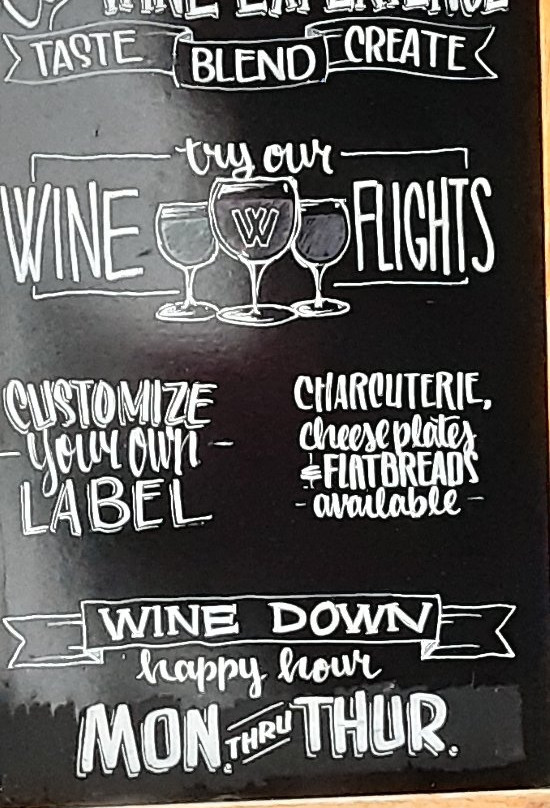 WINE EXPERIENCE
TASTE BLEND CREATE
try our
WINE W FLIGHTS
CUSTOMIZE
- your own -
LABEL
CHARCUTERIE,
cheese plates
& FLATBREADS
- available -
WINE DOWN
happy hour
MON. THRU THUR.